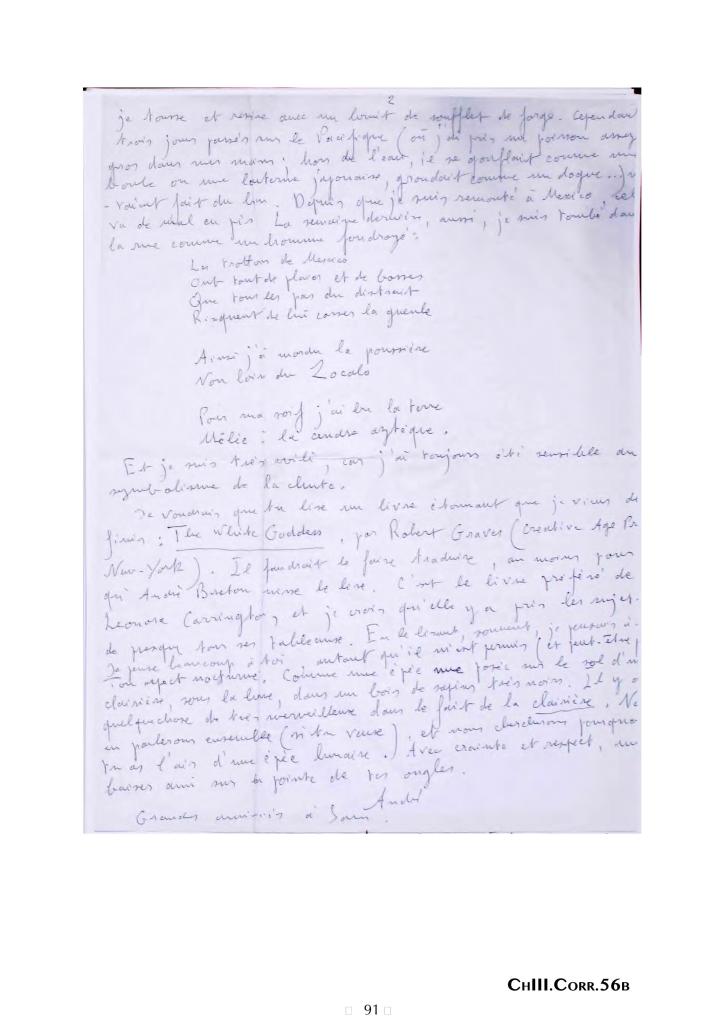 2
je tousse et respire avec un bruit de soufflet de forge. Cependant
trois jours passés sur le Pacifique (où j'ai pris un poisson assez
gros dans mes mains : hors de l'eau, il se gonflait comme une
boule ou une lanterne japonaise, grondait comme un dogue...)
-vaient fait du bien. Depuis que je suis remonté à Mexico, cel
va de mal en pis. La semaine dernière, aussi, je suis tombé dan
la rue comme un homme foudroyé :
Les trottoirs de Mexico
Ont tant de places et de bosses
Que tous les pas du distrait
Risquent de lui casser la gueule
Ainsi j'ai mordu la poussière
Non loin du Zocalo
Pour ma soif j'ai bu la terre
Mêlée : la cendre aztèque.
Et je suis très avili, car j'ai toujours été sensible au
symbolisme de la chute.
Je voudrais que tu lise un livre étonnant que je viens de
finir : The White Goddess, par Robert Graves (Creative Age Pr
New-York). Il faudrait le faire traduire, au moins pour
qu'André Breton puisse le lire. C'est le livre préféré de
Leonora Carrington, et je crois qu'elle y a pris les sujets
de presque tous ses tableaux. En le lisant, souvent, je pensais à
Je pense beaucoup à toi autant qu'il m'est permis (et peut-être p
ton aspect nocturne. Comme une épée nue posée sur le sol d'u
clairière, sous la lune, dans un bois de sapins très noirs. Il y a
quelque chose de très merveilleux dans le fait de la clairière. No
en parlerons ensemble (si tu veux), et nous chercherons pourquo
tu as l'air d'une épée lunaire.) Avec crainte et respect, un
baiser ami sur la pointe de tes ongles.
André
Grandes amitiés à
ChIII.Corr.56b
91